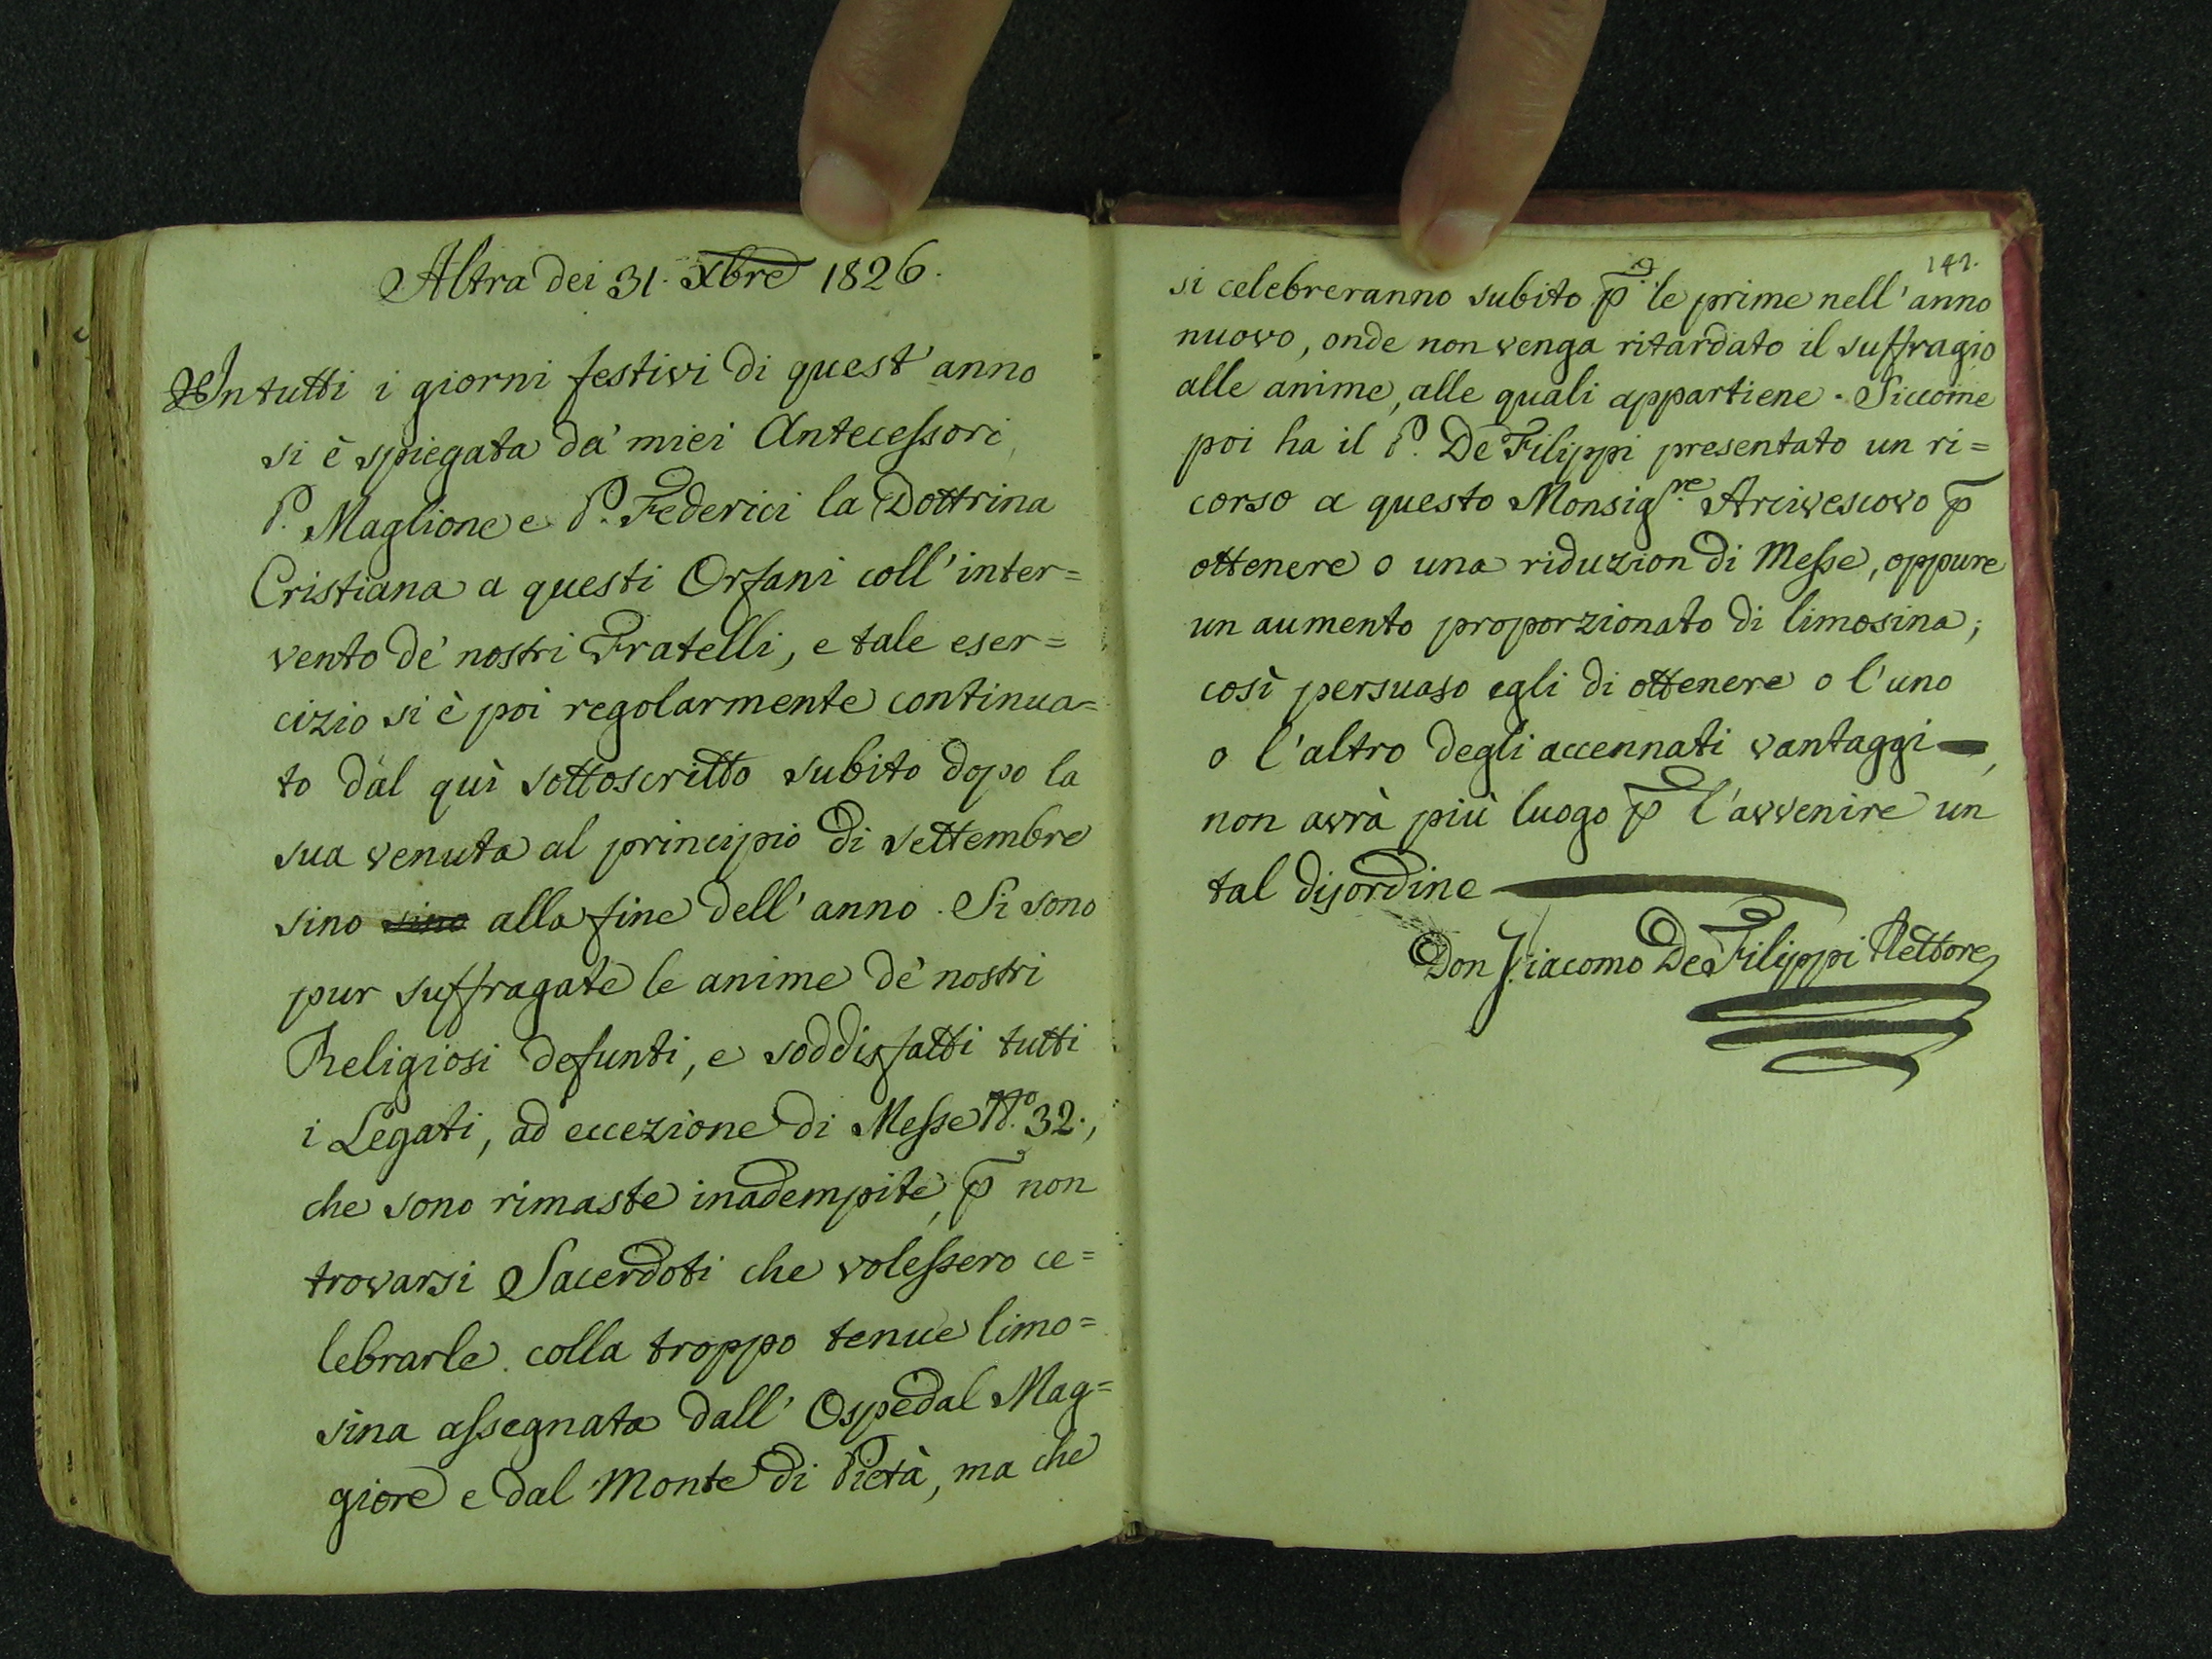 Altra dei 31. Xbre 1826.
In tutti i giorni festivi di quest'anno
si è spiegata da' miei Antecessori
P. Maglione e P. Federici la Dottrina
Cristiana a questi Orfani coll'inter=
vento de' nostri Fratelli, e tale eser=
cizio si è poi regolarmente continua=
to dal quì sottoscritto subito dopo la
sua venuta al principio di settembre
sino sino alla fine dell'anno. Si sono
pur suffragate le anime de' nostri
Religiosi defunti, e soddisfatti tutti
i Legati, ad eccezione di Messe N.º 32.,
che sono rimaste inadempite, p̄ non
trovarsi Sacerdoti che volessero ce=
lebrarle colla troppo tenue limo=
sina assegnata dall'Ospedal Mag=
giore e dal Monte di Pietà, ma che
141.
si celebreranno subito p̄ le prime nell'anno
nuovo, onde non venga ritardato il suffragio
alle anime, alle quali appartiene. Siccome
poi ha il P. De Filippi presentato un ri=
corso a questo Monsig.re Arcivescovo p̄
ottenere o una riduzion di Messe, oppure
un aumento proporzionato di limosina;
così persuaso egli di ottenere o l'uno
o l'altro degli accennati vantaggi,
non avrà più luogo p̄ l'avvenire un
tal disordine
Don Giacomo De Filippi Rettore